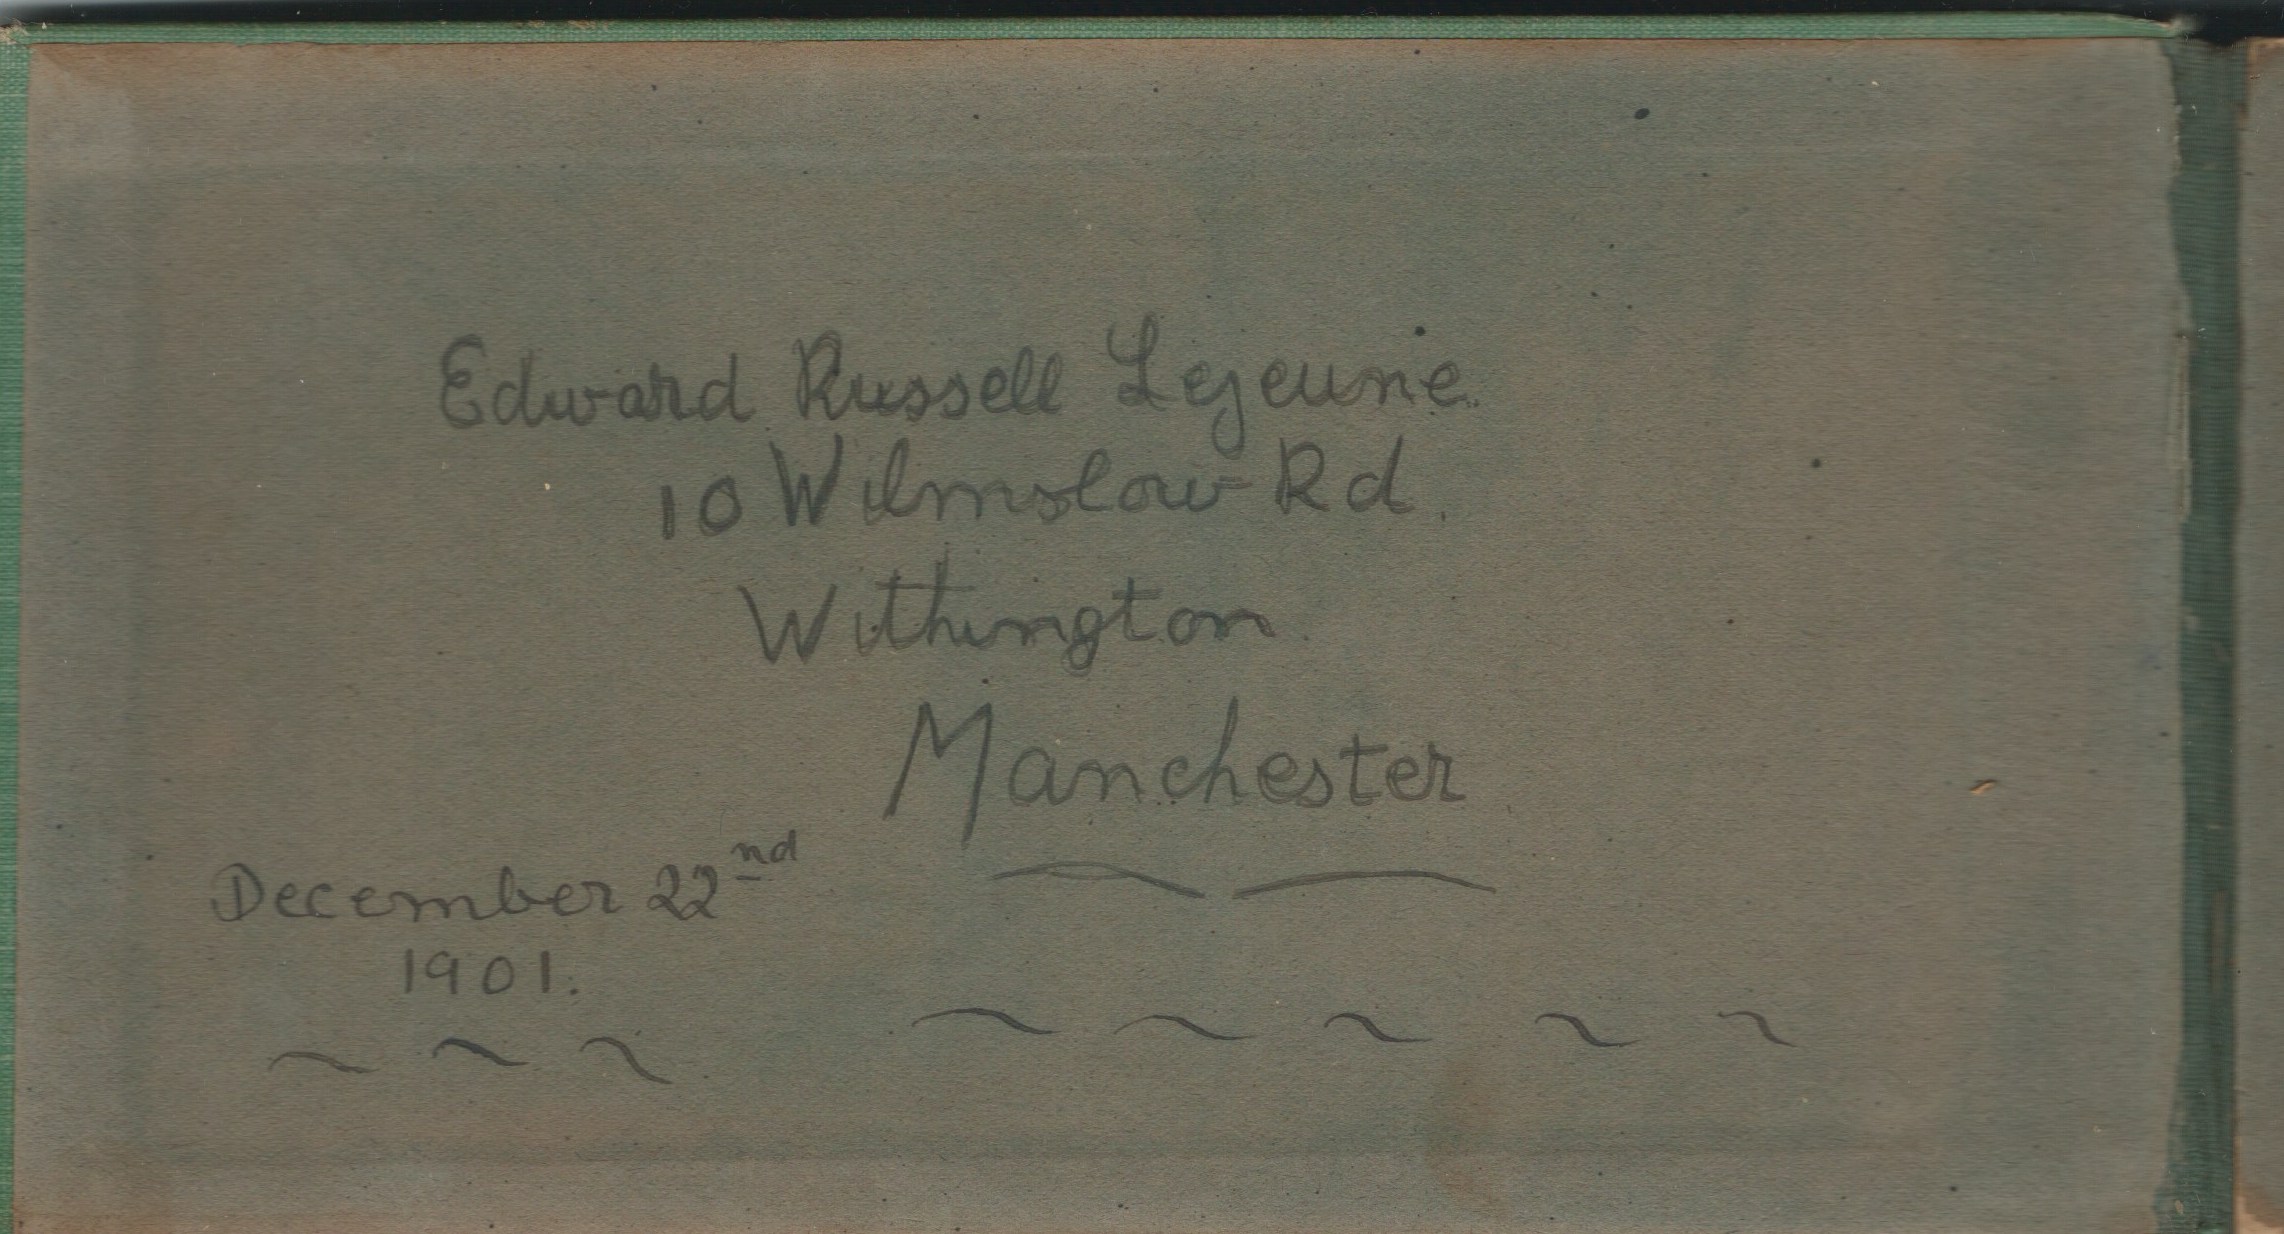 Edward Russell Lejeune.
10 Wilmslow Rd.
Withington
Manchester
December 22nd
1901.